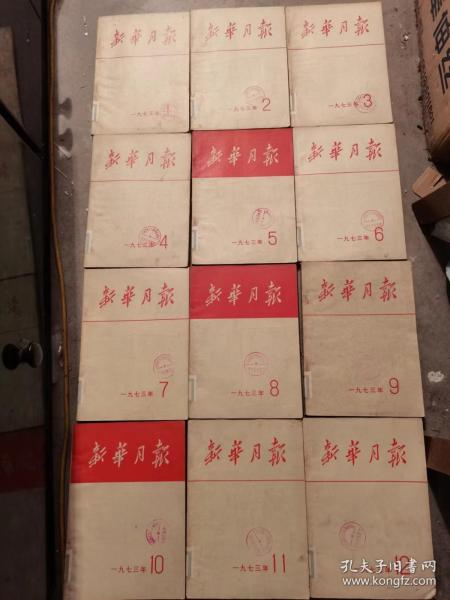 新华月报
一九七三年 1
新华月报
一九七三年 2
新华月报
一九七三年 3
新华月报
一九七三年 4
新华月报
一九七三年 5
新华月报
一九七三年 6
新华月报
一九七三年 7
新华月报
一九七三年 8
新华月报
一九七三年 9
新华月报
一九七三年 10
新华月报
一九七三年 11
新华月报
一九七三年 12
孔夫子旧书网
www.kongfz.com